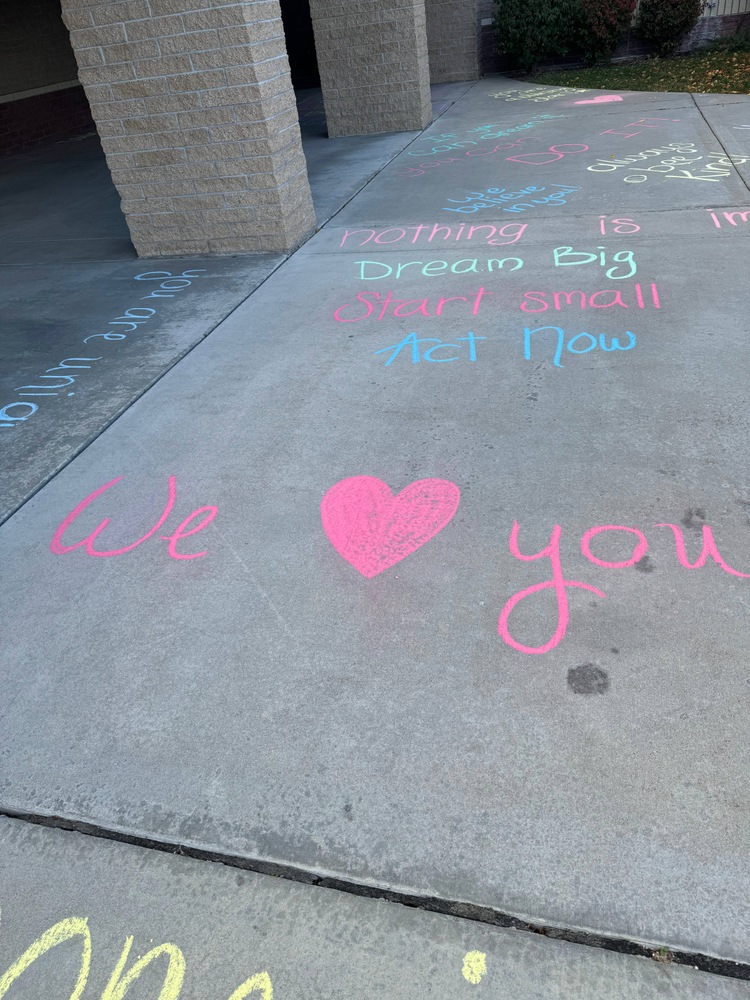 If you
can dream it
you can DO IT!
always
bee
Kind
We
believe
in you!
nothing is im
Dream Big
Start small
Act Now
you are uniq
We ♥ you